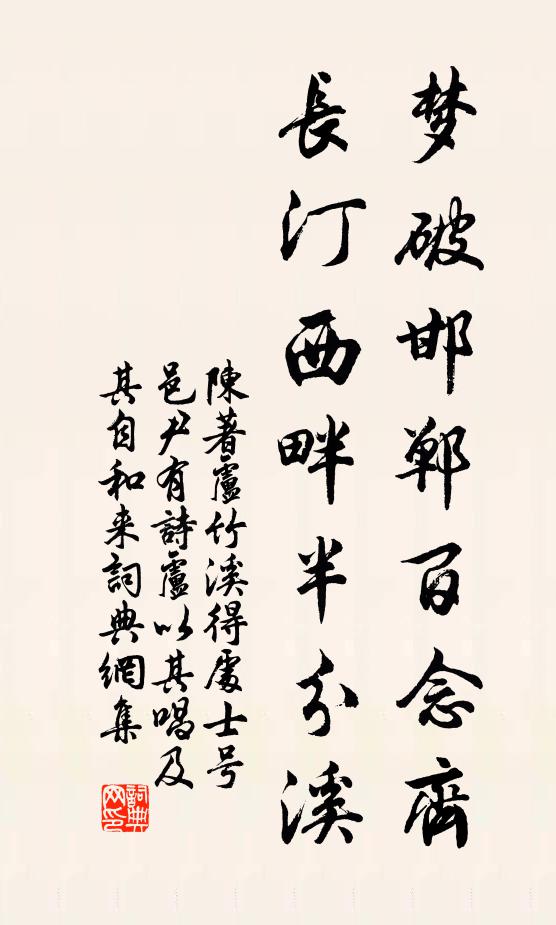 梦破邯鄲百念齊
長汀西畔半分溪
陳著盧竹溪得處士号
邑尹有詩盧以其唱及
其自和来詞典網集
詞典网印